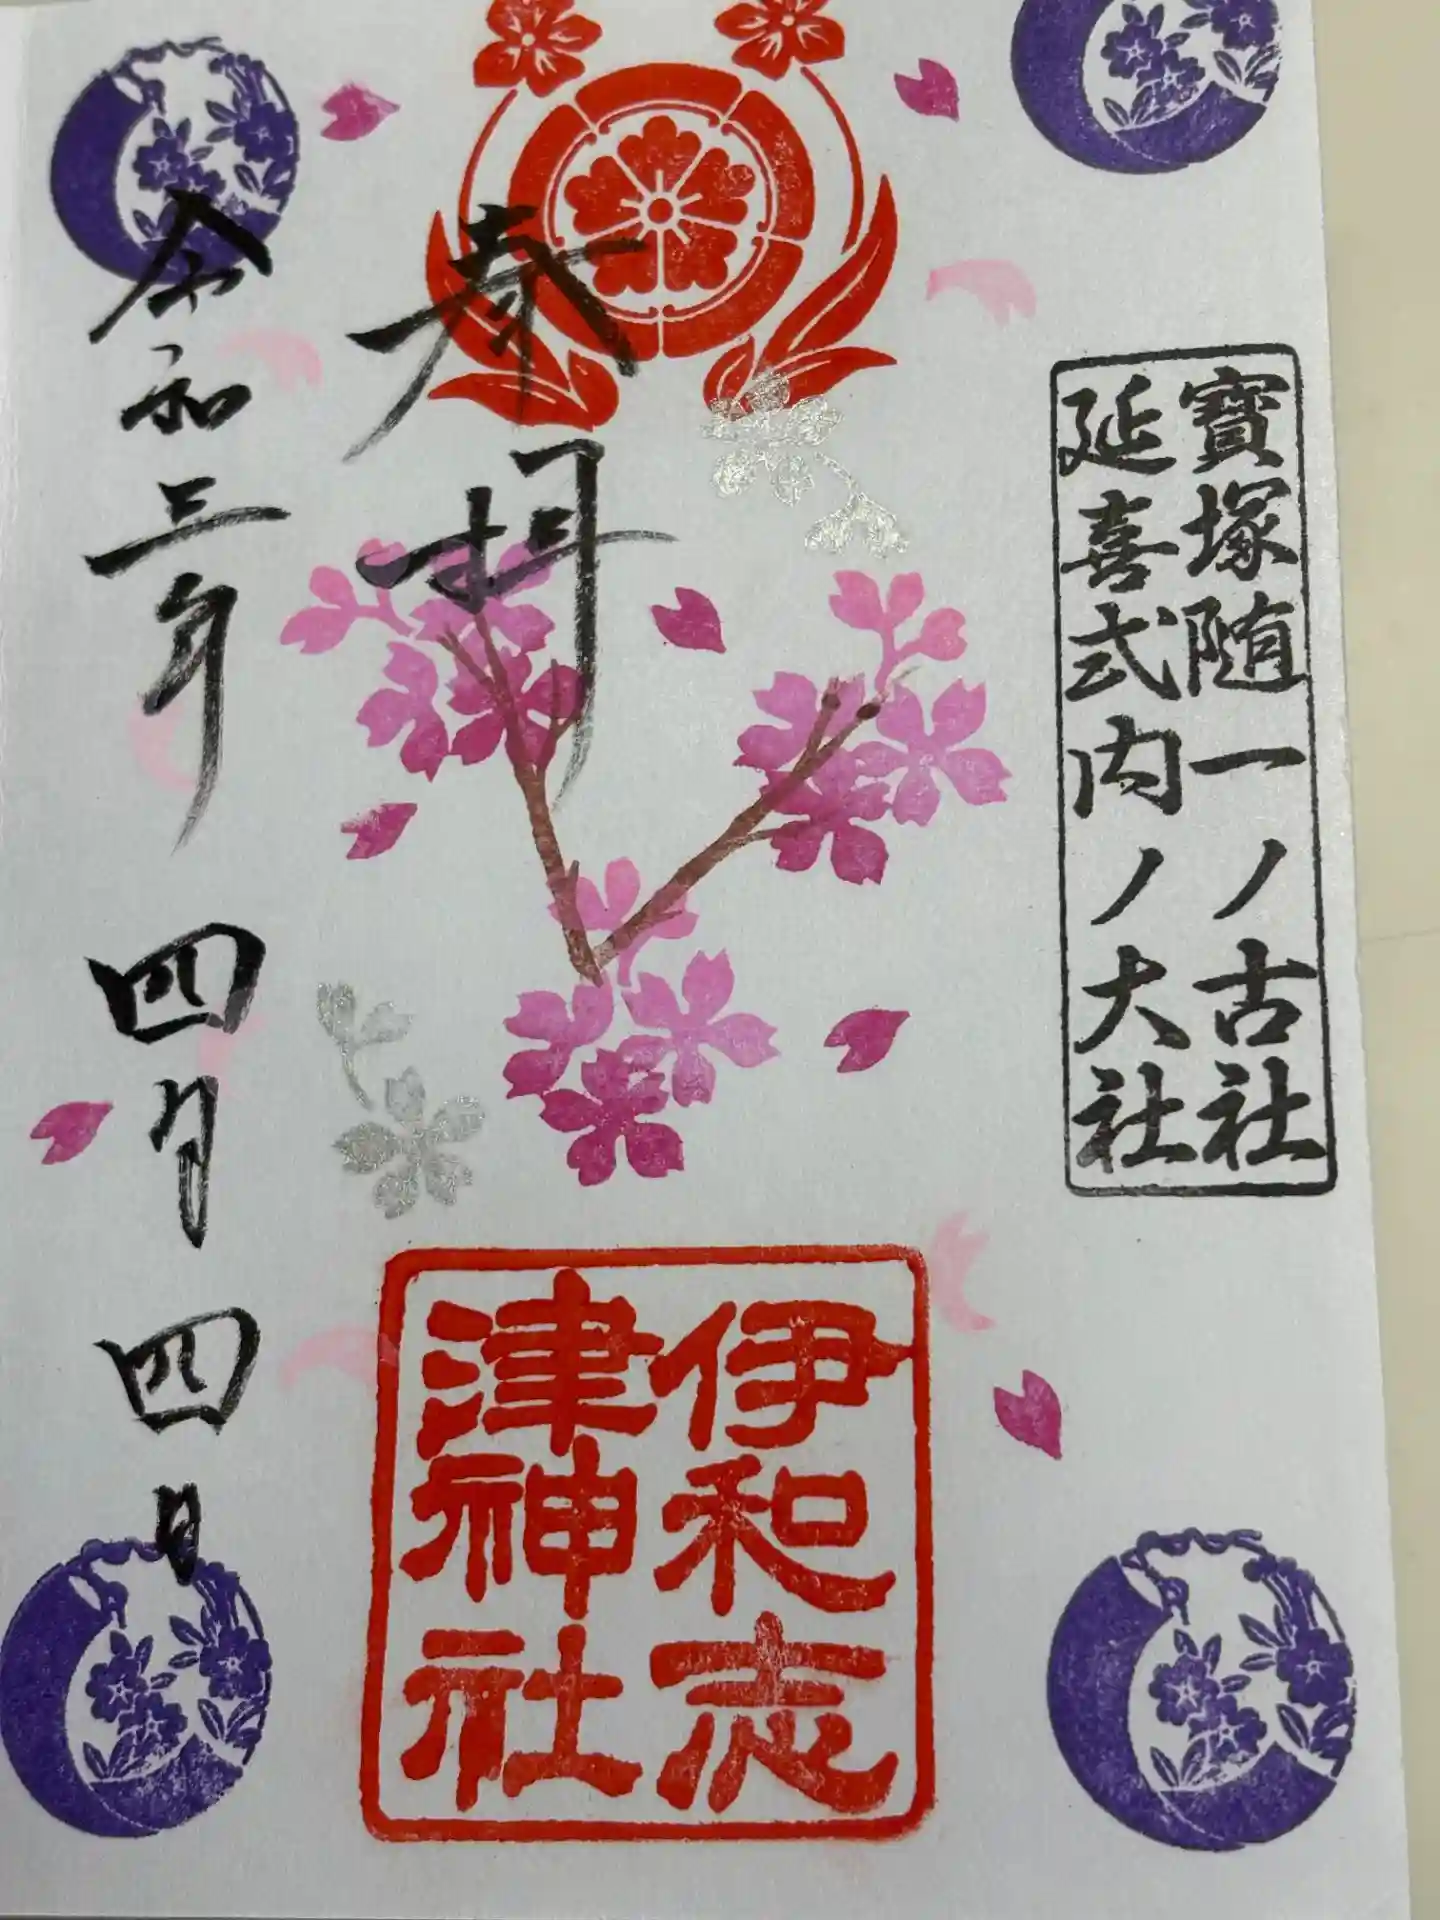 寶塚随一ノ古社
延喜式内ノ大社
奉拝
伊和志
津神社
令和三年 四月四日